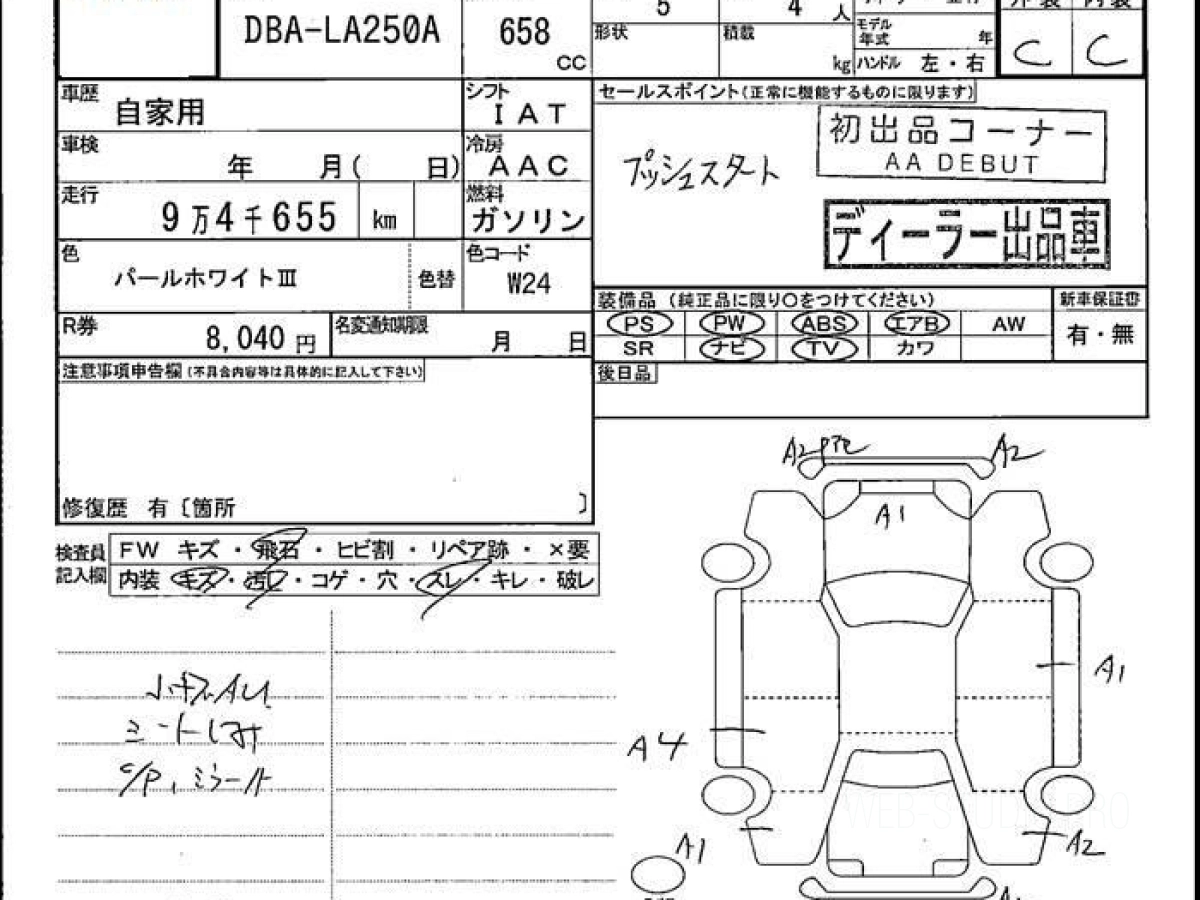 5 4 人
DBA-LA250A 658 CC
形状 積載 kg
モデル年式 年
ハンドル 左・右
C C
車歴 自家用
シフト IAT
セールスポイント(正常に機能するものに限ります)
初出品コーナー
AA DEBUT
プッシュスタート
車検 年 月( 日)
冷房 AAC
走行 9万4千655 km
燃料 ガソリン
ディーラー出品車
色 パールホワイトⅢ 色替
色コード W24
装備品 (純正品に限り○をつけてください) 新車保証書
PS PW ABS エアB AW
SR ナビ TV カワ
有・無
R券 8,040 円
名変通知期限 月 日
注意事項申告欄(不具合内容等は具体的に記入して下さい)
後日品
修復歴 有〔箇所 〕
検査員記入欄
FW キズ・飛石・ヒビ割・リペア跡・×要
内装 キズ・汚レ・コゲ・穴・スレ・キレ・破レ
A2 A2
A1
A1
A4
A1
A2
小キズAU
C/P、ミラー
WEB-STUDIO.PRO